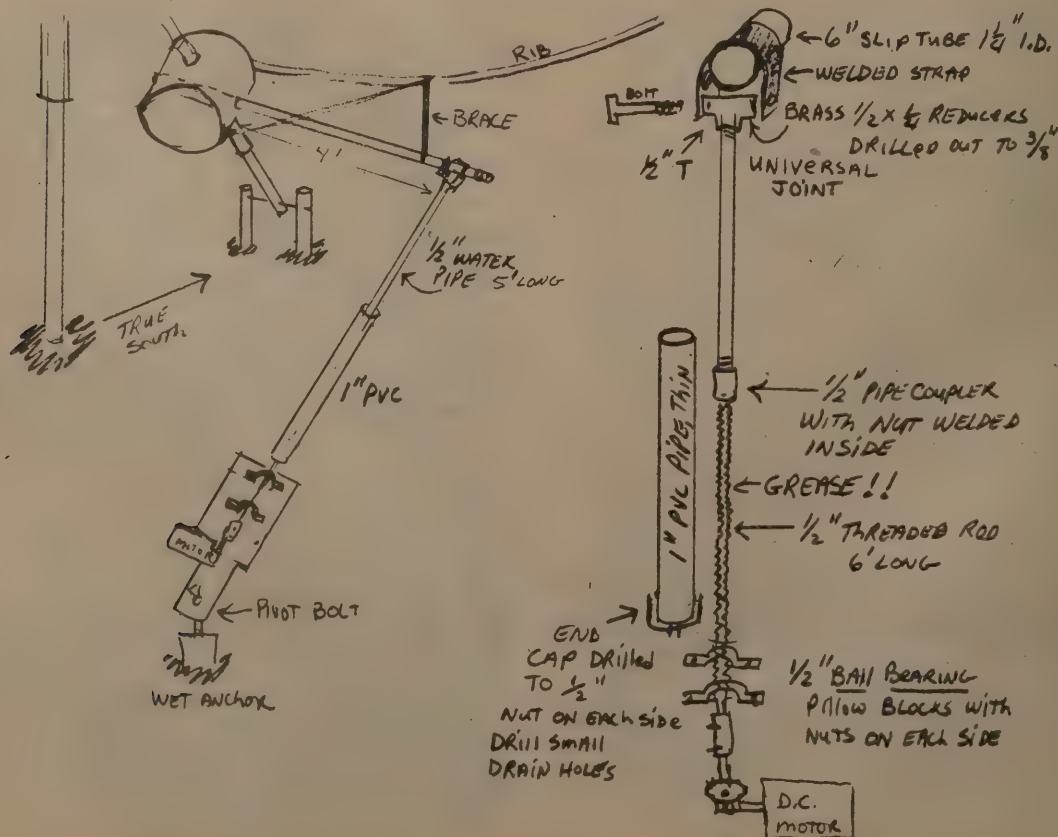 RIB
BRACE
4'
1/2" WATER
PIPE 5' LONG
TRUE
SOUTH
1" PVC
MOTOR
PIVOT BOLT
WET ANCHOR
6" SLIP TUBE 1 1/4" I.D.
WELDED STRAP
BOLT
BRASS 1/2 x 1/4 REDUCERS
DRILLED OUT TO 3/8"
1/2" T
UNIVERSAL
JOINT
1/2" PIPE COUPLER
WITH NUT WELDED
INSIDE
GREASE!!
1/2" THREADED ROD
6' LONG
1" PVC PIPE, THIN
END
CAP DRILLED
TO 1/2"
NUT ON EACH SIDE
DRILL SMALL
DRAIN HOLES
1/2" BALL BEARING
PILLOW BLOCKS WITH
NUTS ON EACH SIDE
D.C.
MOTOR